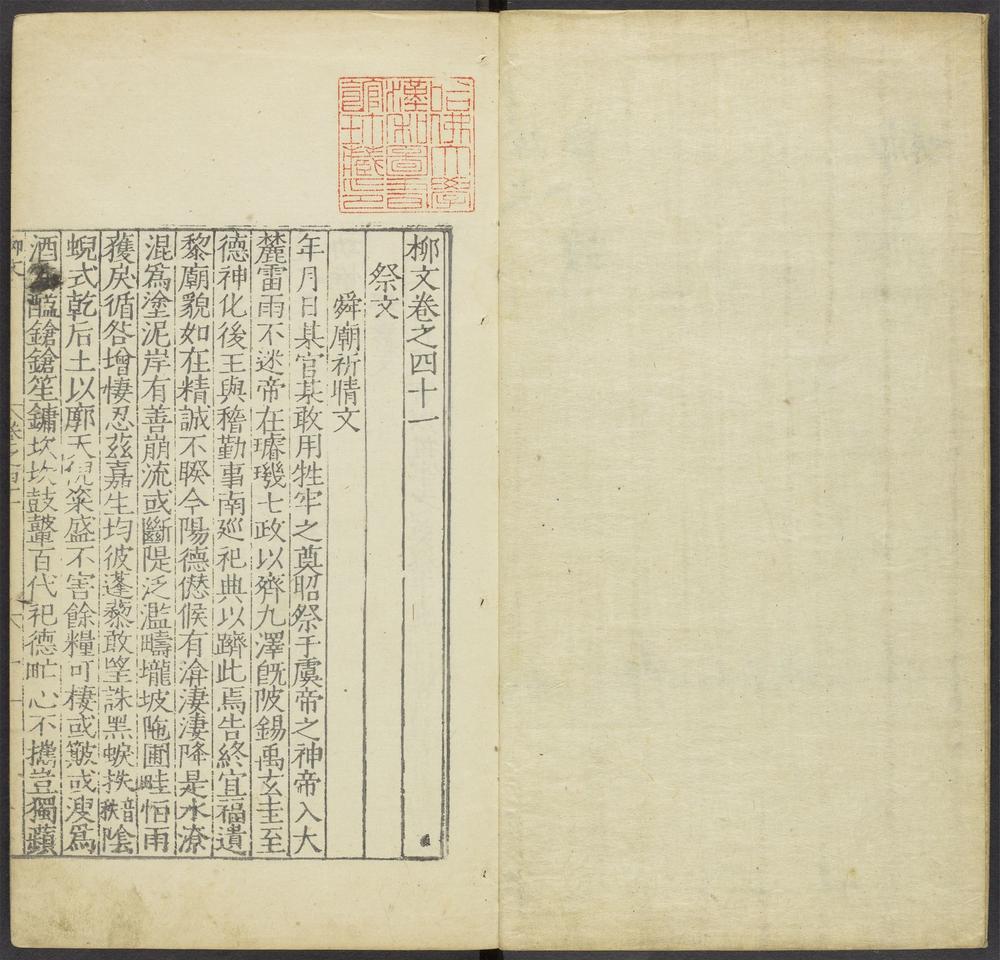 哈佛大學
漢和圖書
館珍藏印
柳文卷之四十一
祭文
舜廟祈晴文
年月日某官某敢用牲牢之奠昭祭于虞帝之神帝入大
麓雷雨不迷帝在璿璣七政以齊九澤旣陂錫禹玄圭至
德神化後王與稽勤事南廵祀典以躋此焉告終宜福遺
黎廟貌如在精誠不暌今陽德僽候有渰淒淒降是水潦
混爲塗泥岸有善崩流或斷隄泛濫疇壠坡陁圃畦恒雨
獲戾循咎增悽忍茲嘉生均彼蓬藜敢望誅黑蜧抶音秩陰
蜺式乾后土以廓天倪粢盛不害餘糧可棲或簸或溲爲
酒醯鎗鎗笙鏞坎坎鼓鼙百代祀德甿心不攜豈獨蘋